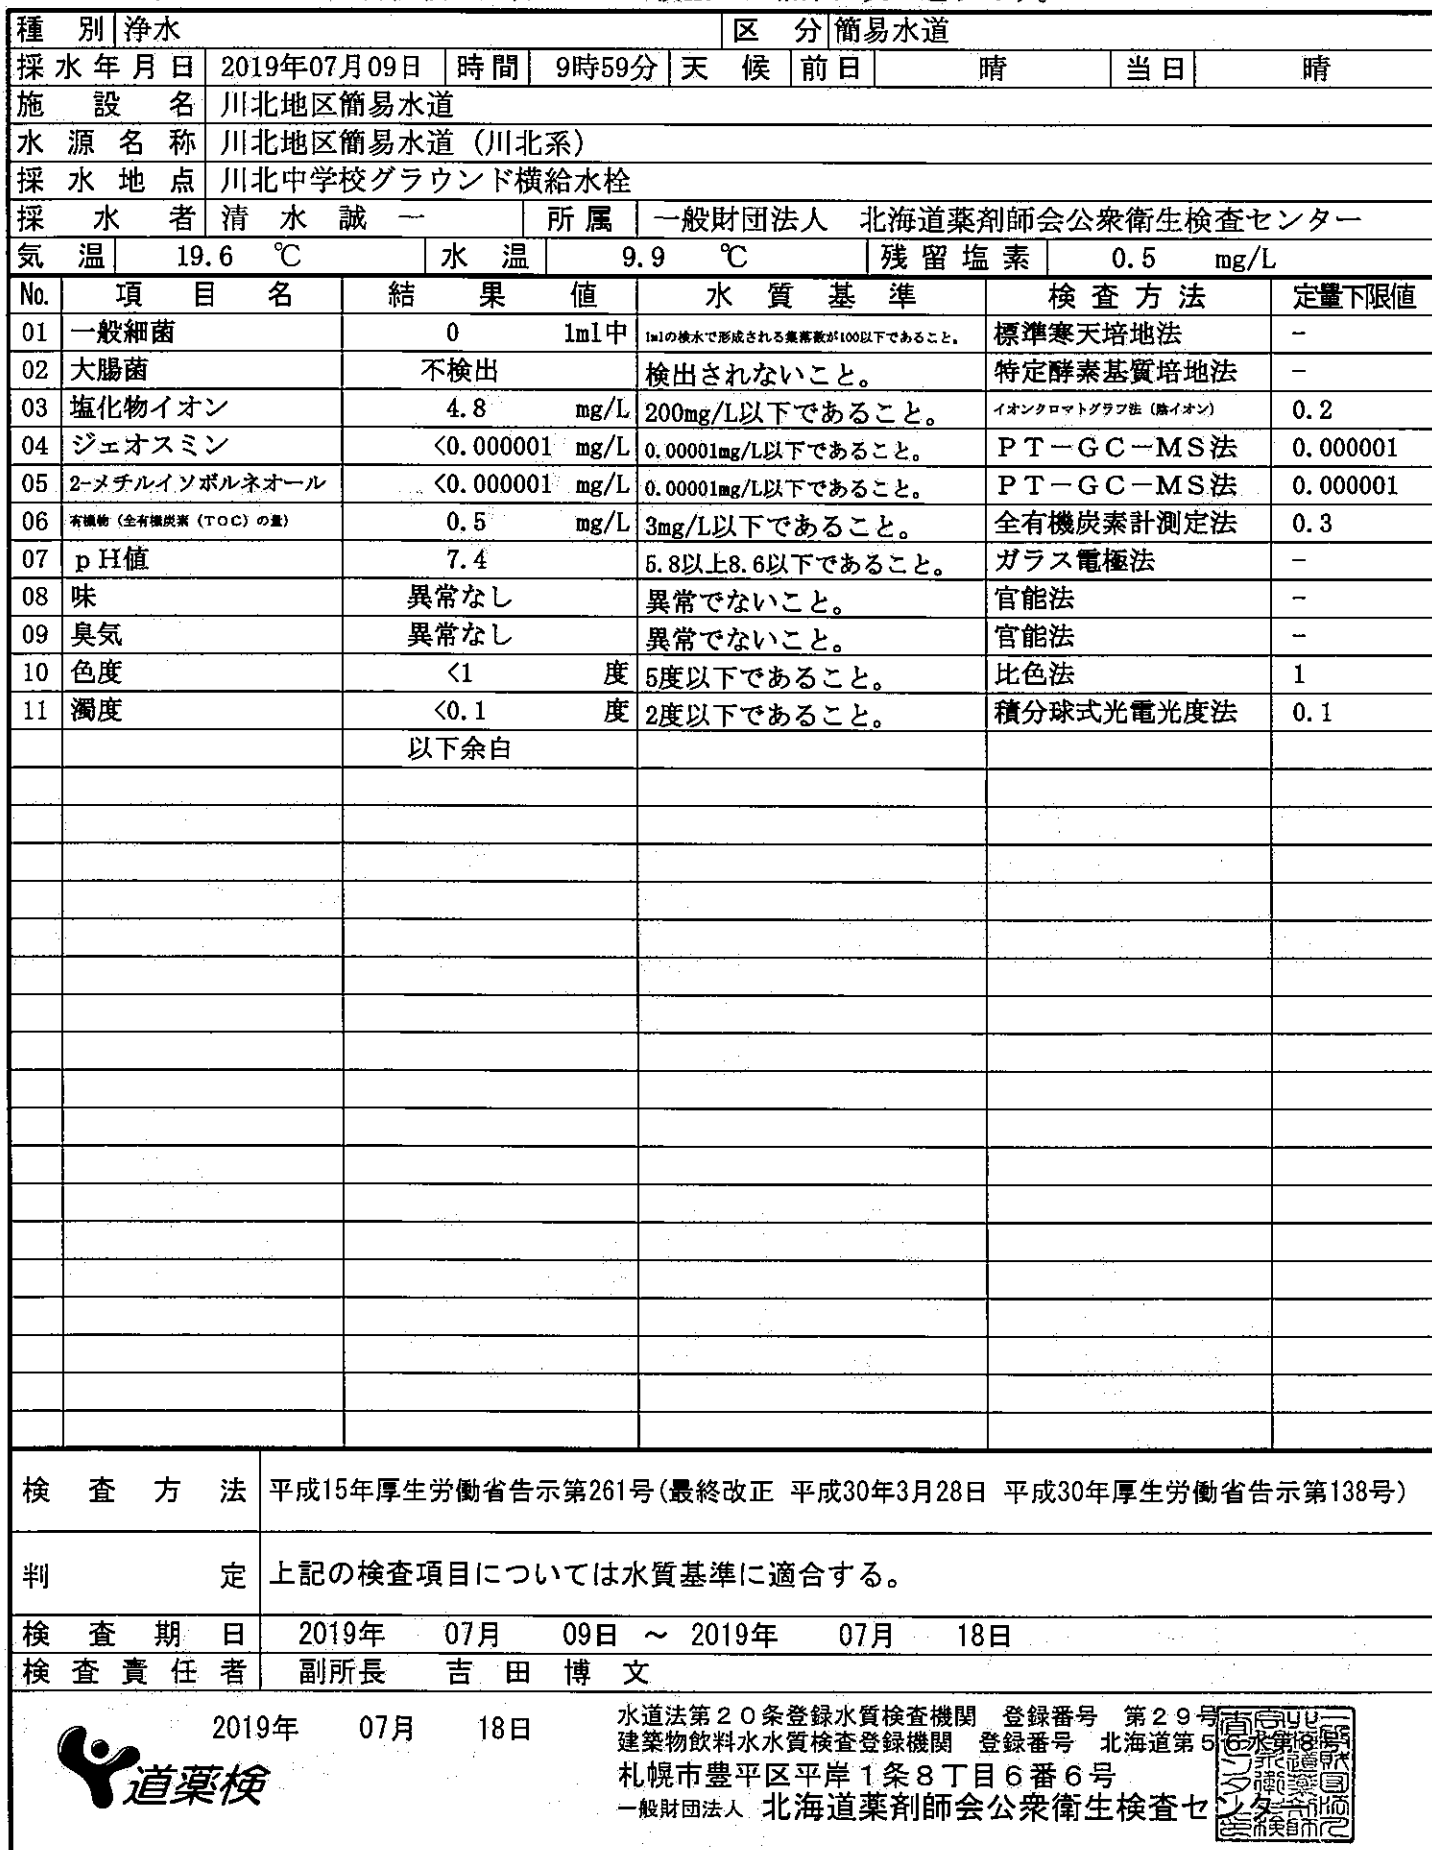 種別 浄水 区分 簡易水道
採水年月日 2019年07月09日 時間 9時59分 天候 前日 晴 当日 晴
施設名 川北地区簡易水道
水源名称 川北地区簡易水道（川北系）
採水地点 川北中学校グラウンド横給水栓
採水者 清水誠一 所属 一般財団法人 北海道薬剤師会公衆衛生検査センター
気温 19.6 ℃ 水温 9.9 ℃ 残留塩素 0.5 mg/L
No. 項目名 結果値 水質基準 検査方法 定量下限値
01 一般細菌 0 1ml中 1mlの検水で形成される集落数が100以下であること。 標準寒天培地法 −
02 大腸菌 不検出 検出されないこと。 特定酵素基質培地法 −
03 塩化物イオン 4.8 mg/L 200mg/L以下であること。 イオンクロマトグラフ法（陰イオン） 0.2
04 ジェオスミン <0.000001 mg/L 0.00001mg/L以下であること。 ＰＴ−ＧＣ−ＭＳ法 0.000001
05 2-メチルイソボルネオール <0.000001 mg/L 0.00001mg/L以下であること。 ＰＴ−ＧＣ−ＭＳ法 0.000001
06 有機物（全有機炭素（TOC）の量） 0.5 mg/L 3mg/L以下であること。 全有機炭素計測定法 0.3
07 ｐH値 7.4 5.8以上8.6以下であること。 ガラス電極法 −
08 味 異常なし 異常でないこと。 官能法 −
09 臭気 異常なし 異常でないこと。 官能法 −
10 色度 <1 度 5度以下であること。 比色法 1
11 濁度 <0.1 度 2度以下であること。 積分球式光電光度法 0.1
以下余白
検査方法 平成15年厚生労働省告示第261号(最終改正 平成30年3月28日 平成30年厚生労働省告示第138号)
判定 上記の検査項目については水質基準に適合する。
検査期日 2019年 07月 09日 ～ 2019年 07月 18日
検査責任者 副所長 吉田博文
2019年 07月 18日
道薬検
水道法第２０条登録水質検査機関 登録番号 第２９号
建築物飲料水水質検査登録機関 登録番号 北海道第５
札幌市豊平区平岸１条８丁目６番６号
一般財団法人 北海道薬剤師会公衆衛生検査センター